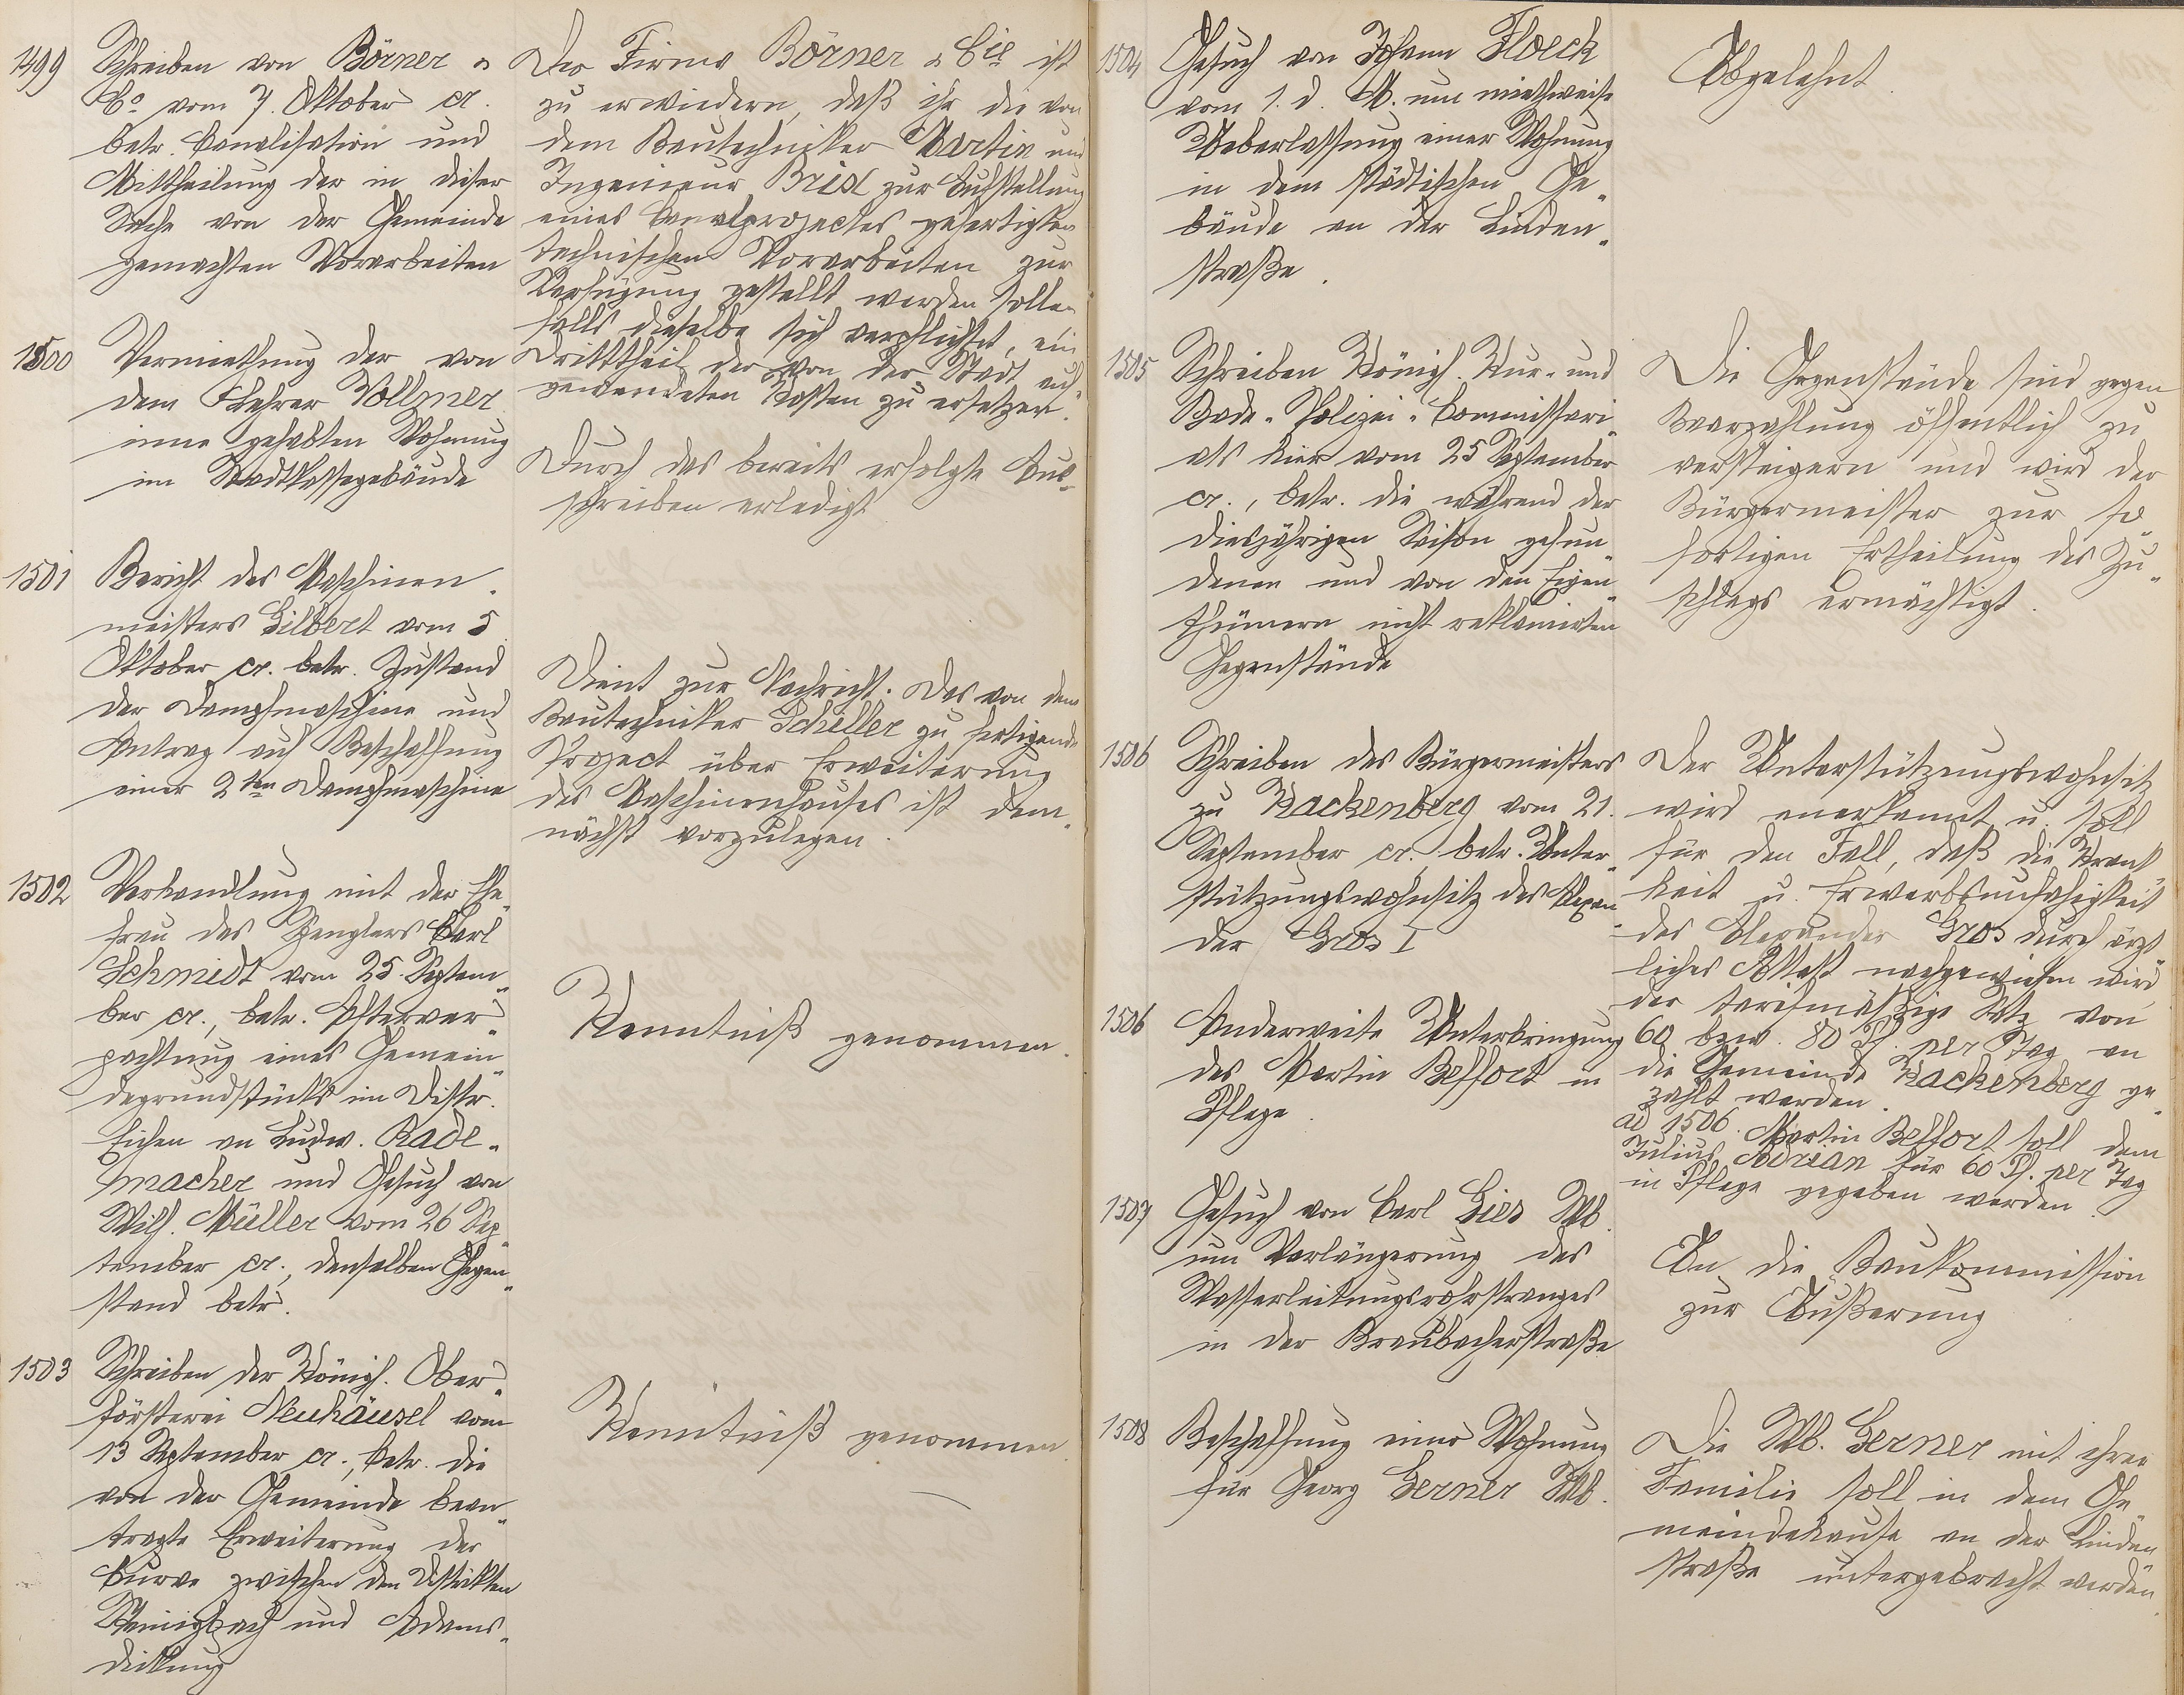 1499
Schreiben von Börner &
Co vom 7. Oktober cr.
betr. Canalisation und
Mittheilung der in dieser
Sache von der Gemeinde
gemachten Vorarbeiten
Der Firma Börner & Cie ist
zu erwiedern, daß ihr die von
dem Bautechniker Martin und
Ingenieur Brix zur Aufstellung
eines Canalprojectes gefertigten
technischen Vorarbeiten zur
Verfügung gestellt werden sollen
falls dieselbe sich verpflichtet, ein
Dritttheil der von der Stadt auf-
gewendeten Kosten zu ersetzen.
1500
Vermiethung der von
dem Lehrer Vollmer
inne gehabten Wohnung
im Stadtkassegebäude
Durch das bereits erfolgte Aus-
schreiben erledigt
1501
Bericht des Maschinen-
meisters Gilbert vom 5
Oktober cr. betr. Zustand
der Dampfmaschine und
Antrag auf Beschaffung
einer 2ten Dampfmaschine
Dient zur Nachricht. Das von dem
Bautechniker Schiller zu fertigende
Project über Erweiterung
des Maschinenhauses ist dem-
nächst vorzulegen.
1502
Verhandlung mit der Ehe-
frau des Spenglers Carl
Schmidt vom 25. Septem-
ber cr., betr. Afterver-
pachtung eines Gemein-
degrundstücks im Distr.
Eichen an Ludw. Rade-
macher und Gesuch von
Wilh. Müller vom 26 Sep-
tember cr., denselben Gegen-
stand betr.
Kenntniß genommen.
1503
Schreiben der Königl. Ober-
försterei Neuhäusel vom
13 September cr., betr. die
von der Gemeinde bean-
tragte Erweiterung der
Curve zwischen den Distrikten
und Adams-
dickung
Kenntniß genommen
1504
Gesuch von Johann Floeck
vom 1. d. M. um miethweise
Ueberlassung einer Wohnung
in dem städtischen Ge-
bäude an der Linden-
straße.
Abgelehnt.
1505
Schreiben Königl. Kur- und
Bade-Polizei-Commissari-
ats hier vom 25 September
cr., betr. die während der
diesjährigen Saison gefun-
denen und von den Eigen-
thümern nicht reklamirten
Gegenstände
Die Gegenstände sind gegen
Baarzahlung öffentlich zu
versteigern und wird der
Bürgermeister zur so-
fortigen Ertheilung des Zu-
schlags ermächtigt.
1506
Schreiben des Bürgermeisters
zu Kackenberg vom 21.
September cr. betr. Unter-
stützungswohnsitz des Alexan-
der Gros I
Der Unterstützungswohnsitz
wird anerkannt u. soll
für den Fall, daß die Krank-
heit u. Erwerbsunfähigkeit
des Alexander Gros durch ärzt-
liches Attest nachgewiesen wird,
der tarifmäßige Satz von
60 bzw. 80 Pf. per Tag an
die Gemeinde Kackenberg ge-
zahlt werden.
1506
Anderweite Unterbringung
des Martin Beffort in
Pflege.
ad 1506. Martin Beffort soll dem
Julius Adrian für 60 Pf. per Tag
in Pflege gegeben werden.
1507
Gesuch von Carl Gies Wb.
um Verlängerung des
Wasserleitungsrohrstranges
in der Braubacherstraße
An die Baukommission
zur Äußerung
1508
Beschaffung einer Wohnung
für Georg Gerner Wb.
Die Wb. Gerner mit ihrer
Familie soll in dem Ge-
meindehause an der Linden-
straße untergebracht werden.